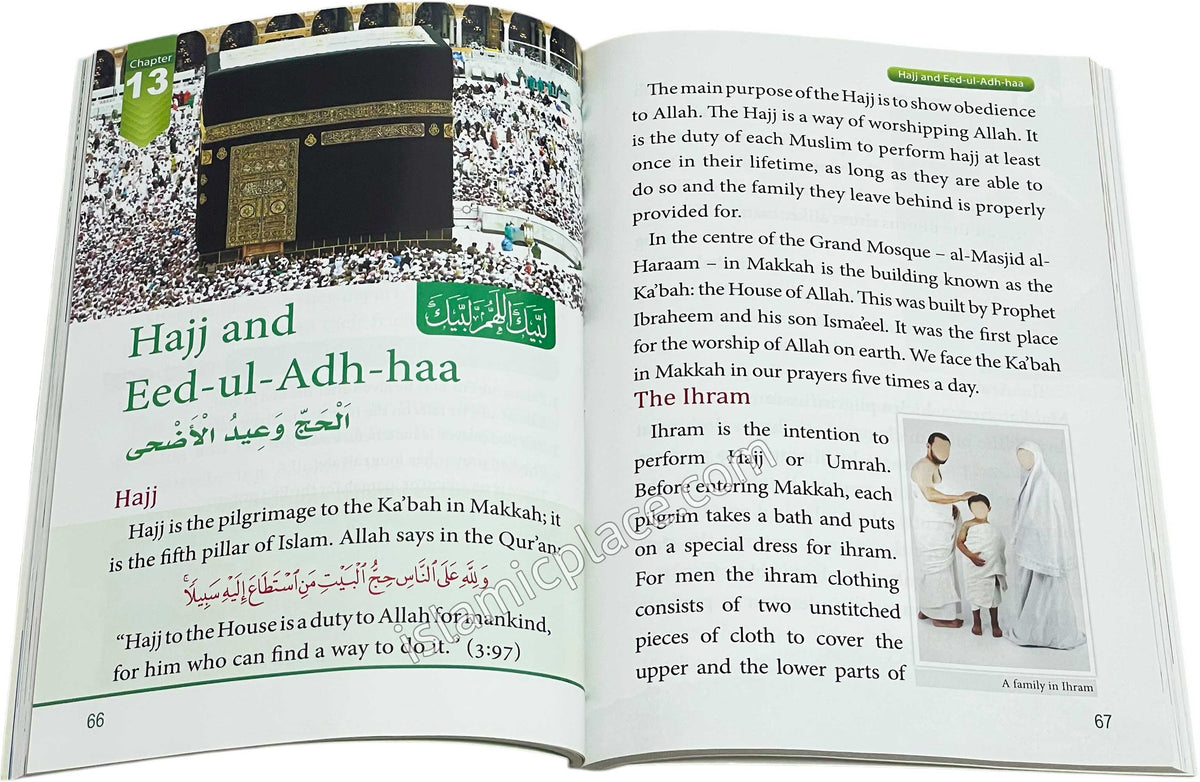 Chapter
13
لبيك اللهم لبيك
Hajj and
Eed-ul-Adh-haa
اَلْحَجّ وَعِيدُ الْأَضْحى
Hajj
Hajj is the pilgrimage to the Ka’bah in Makkah; it
is the fifth pillar of Islam. Allah says in the Qur’an:
وَلِلَّهِ عَلَى ٱلنَّاسِ حِجُّ ٱلْبَيْتِ مَنِ ٱسْتَطَاعَ إِلَيْهِ سَبِيلًا ۚ
“Hajj to the House is a duty to Allah for mankind,
for him who can find a way to do it.” (3:97)
66
Hajj and Eed-ul-Adh-haa
The main purpose of the Hajj is to show obedience
to Allah. The Hajj is a way of worshipping Allah. It
is the duty of each Muslim to perform hajj at least
once in their lifetime, as long as they are able to
do so and the family they leave behind is properly
provided for.
In the centre of the Grand Mosque – al-Masjid al-
Haraam – in Makkah is the building known as the
Ka’bah: the House of Allah. This was built by Prophet
Ibraheem and his son Isma’eel. It was the first place
for the worship of Allah on earth. We face the Ka’bah
in Makkah in our prayers five times a day.
The Ihram
Ihram is the intention to
perform Hajj or Umrah.
Before entering Makkah, each
pilgrim takes a bath and puts
on a special dress for ihram.
For men the ihram clothing
consists of two unstitched
pieces of cloth to cover the
upper and the lower parts of
A family in Ihram
67
islamicplace.com